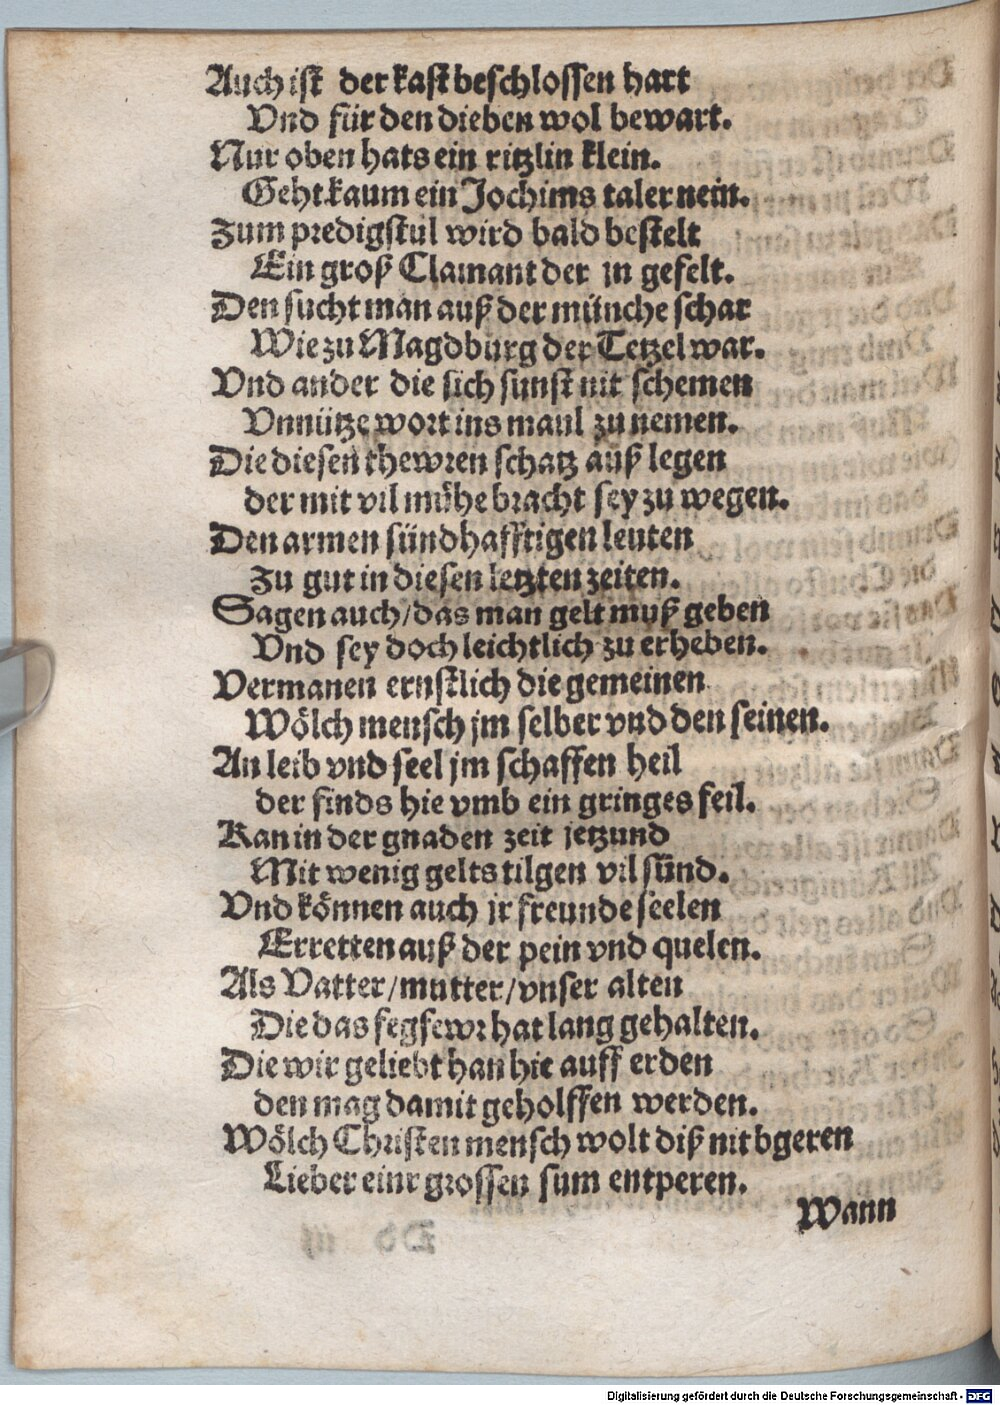 Auch ist der kast beschlossen hart
Vnd für den dieben wol bewart.
Nur oben hats ein ritzlin klein.
Geht kaum ein Jochims taler nein.
Zum predigstul wird bald bestelt
Ein groß Clamant der jn gefelt.
Den sucht man auß der münche schar
Wie zu Magdburg der Tetzel war.
Vnd ander die sich sunst nit schemen
Vnnütze wort ins maul zu nemen.
Die diesen thewren schatz auß legen
der mit vil mühe bracht sey zu wegen.
Den armen sündhafftigen leuten
Zu gut in diesen letzten zeiten.
Sagen auch/das man gelt muß geben
Vnd sey doch leichtlich zu erheben.
Vermanen ernstlich die gemeinen
Wölch mensch jm selber vnd den seinen.
An leib vnd seel jm schaffen heil
der finds hie vmb ein gringes feil.
Kan in der gnaden zeit jetzund
Mit wenig gelts tilgen vil sünd.
Vnd können auch jr freunde seelen
Erretten auß der pein vnd quelen.
Als Vatter/mutter/vnser alten
Die das fegfewr hat lang gehalten.
Die wir geliebt han hie auff erden
den mag damit geholffen werden.
Wölch Christen mensch wolt diß nit bgeren
Lieber einr grossen sum entperen.
Wann
Digitalisierung gefördert durch die Deutsche Forschungsgemeinschaft - DFG